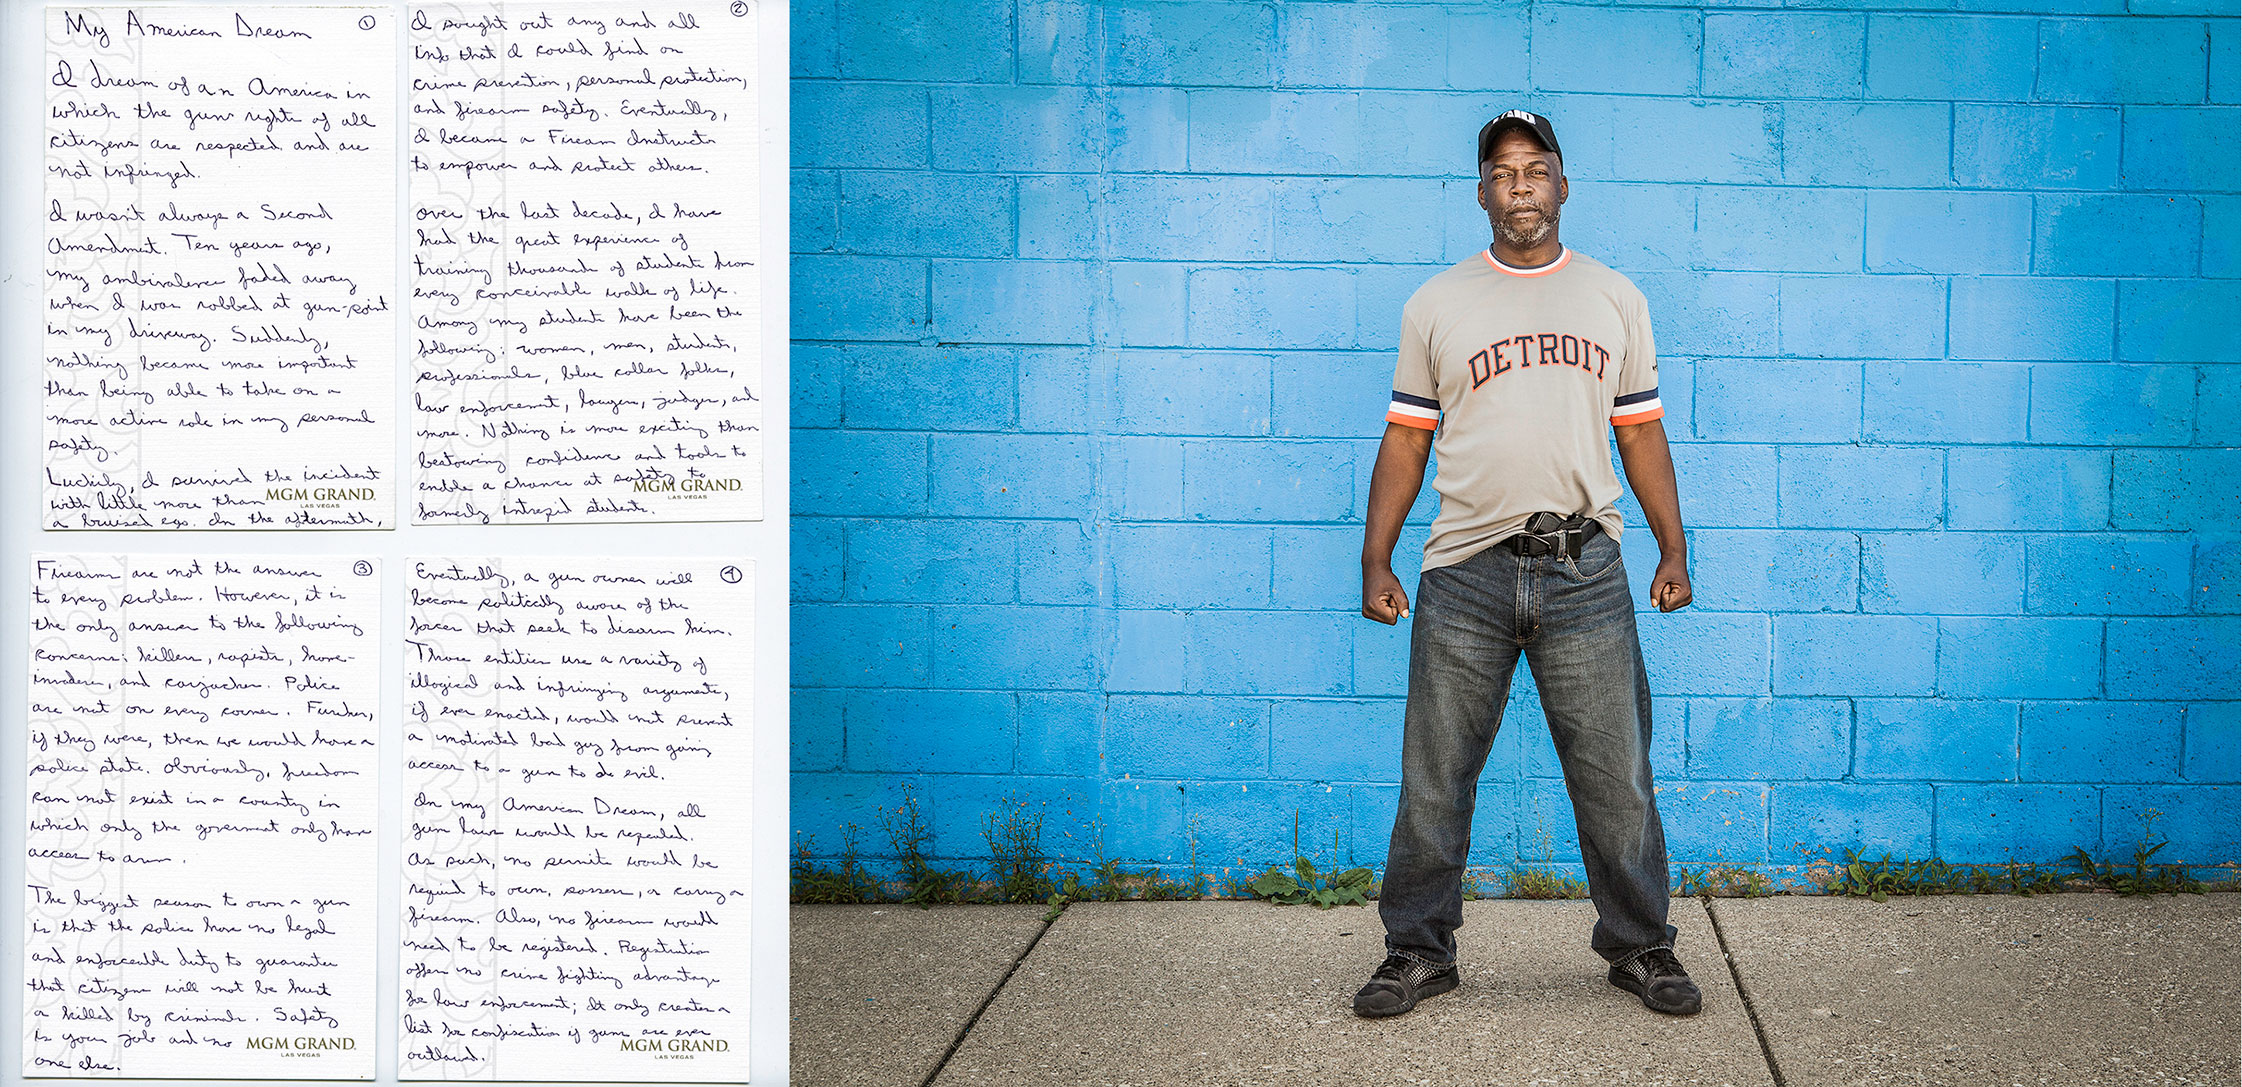 My American Dream
①
I dream of an America in
which the gun rights of all
citizens are respected and are
not infringed.
I wasn't always a Second
Amendment. Ten years ago,
my ambivalence faded away
when I was robbed at gun-point
in my driveway. Suddenly,
nothing became more important
than being able to take on a
more active role in my personal
safety.
Luckily, I survived the incident
with little more than
a bruised ego. In the aftermath,
MGM GRAND.
LAS VEGAS
②
I sought out any and all
info that I could find on
crime prevention, personal protection,
and firearm safety. Eventually,
I became a Firearm Instructor
to empower and protect others.
Over the last decade, I have
had the great experience of
training thousands of students from
every conceivable walk of life.
Among my students have been the
following: women, men, students,
professionals, blue collar folks,
law enforcement, lawyers, judges, and
more. Nothing is more exciting than
bestowing confidence and tools to
enable a chance at safety to
formerly intrepid students.
MGM GRAND.
LAS VEGAS
③
Firearms are not the answer
to every problem. However, it is
the only answer to the following
concerns: killers, rapists, home-
invaders, and carjackers. Police
are not on every corner. Further,
if they were, then we would have a
police state. Obviously, freedom
can not exist in a country in
which only the government only have
access to arms.
The biggest reason to own a gun
is that the police have no legal
and enforceable duty to guarantee
that citizens will not be hurt
or killed by criminals. Safety
is your job and no
one else.
MGM GRAND.
LAS VEGAS
④
Eventually, a gun owner will
become politically aware of the
forces that seek to disarm him.
Those entities use a variety of
illogical and infringing arguments,
if ever enacted, would not prevent
a motivated bad guy from gaining
access to a gun to do evil.
In my American Dream, all
gun laws would be repealed.
As such, no permits would be
required to own, possess, or carry a
firearm. Also, no firearm would
need to be registered. Registration
offers no crime fighting advantage
for law enforcement; It only creates a
list for confiscation if guns are ever
outlawed.
MGM GRAND.
LAS VEGAS
DETROIT